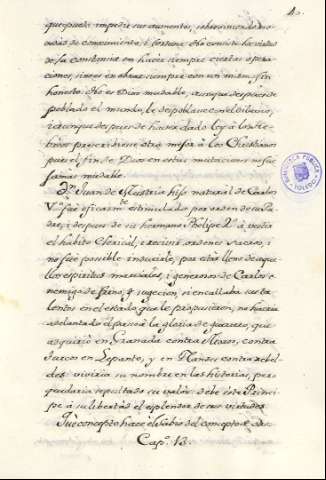 4.
que pueda impedir sus aumentos, sobreviniendo
de conocimiento, i fortuna. No consiste la virtud
de la constancia en hacer siempre unas opera-
ciones, sino en obrar siempre con un mismo fin
honesto. No es Dios mudable, aunque despues de
poblado el mundo, le despoblase con el diluvio,
i aunque despues de haver dado ley á los He-
breos prescribiese otra mejor á los Christianos
pues el fin de Dios en estas mutaciones no fue
jamas mudable.
Dn. Juan de Austria hijo natural de Carlos
V.º fue eficazmte. estimulado por orden de su Pa-
dre, i despues de su hermano Felipe 2.º á vestir
el habito Clerical, i recivir ordenes sacras, i
no fue posible inducirle, por estar lleno de aque-
llos espiritus marciales, i generosos de Carlos e-
nemigo de freno, y sugecion, si encallaba sus ta-
lentos en el estado que le propusieron, no havria
adelantado el paso á la gloria de guerrero, que
adquirió en Granada contra Moros, contra
Turcos en Lepanto, y en Flandes contra rebel-
des viviria su nombre en las historias, per
quedaria sepultado su valor: debe este Princi-
pe á su libertad el esplendor de sus virtudes.
Que concepto hace el Sabio del concepto
Cap.º V3.
BIBLIOTECA PUBLICA
TOLEDO